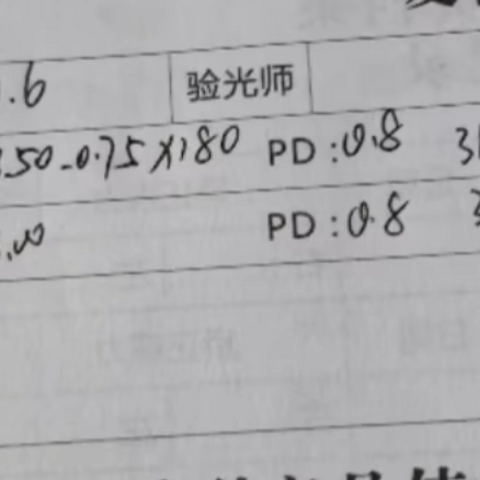 .6 验光师
.50-0.75×180 PD:0.8 3
.00 PD:0.8 3